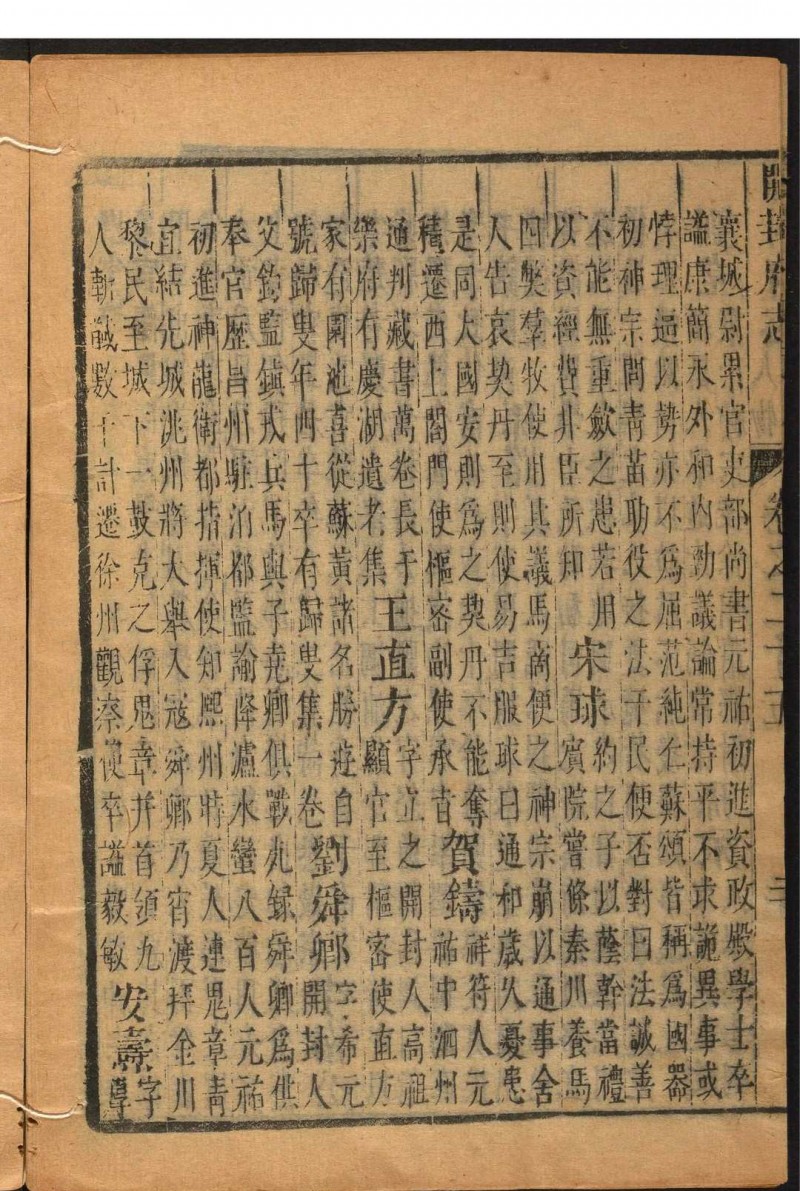 開封府志
卷之二十五
襄城尉累官吏部尚書元祐初進資政殿學士卒
謚康簡永外和內勁議論常持平不求詭異事或
悖理逼以勢亦不爲屈范純仁蘇頌皆稱爲國器
初神宗問青苗助役之法于民便否對曰法誠善
不能無重斂之患若用
以資經費非臣所知
宋球
約之子以蔭幹當禮
賓院嘗條秦川養馬
四獘羣牧使用其議馬商便之神宗崩以通事舍
人告哀契丹至則使易吉服球曰通和歲久憂患
是同大國安則爲之契丹不能奪
積遷西上閤門使樞密副使承旨
賀鑄
祥符人元
祐中泗州
通判藏書萬卷長于
樂府有慶湖遺老集
王直方
字立之開封人高祖
顯官至樞密使直方
家有園池喜從蘇黃諸名勝遊自
號歸叟年四十卒有歸叟集一卷
劉舜卿
字希元
開封人
父鈞監鎮戎兵馬與子堯卿俱戰死録舜卿爲供
奉官歷昌州駐泊都監諭降瀘水蠻八百人元祐
初進神龍衛都指揮使知熙州時夏人連鬼章青
宜結先城洮州將大舉入冦舜卿乃宵渡拜金川
黎民至城下一鼓克之俘鬼章并首領九
人斬馘數千計遷徐州觀察使卒謚毅敏
安燾
字
厚